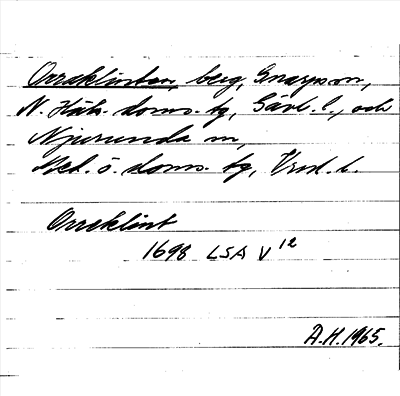 Orreklinten, berg, Gnarps sn,
N. Häls. doms. tg, Gävl. l., och
Njurunda sn,
Med. ö. doms. tg, Vnrl. l.
Orreklint
1698 LSA V 12
A.H. 1965.